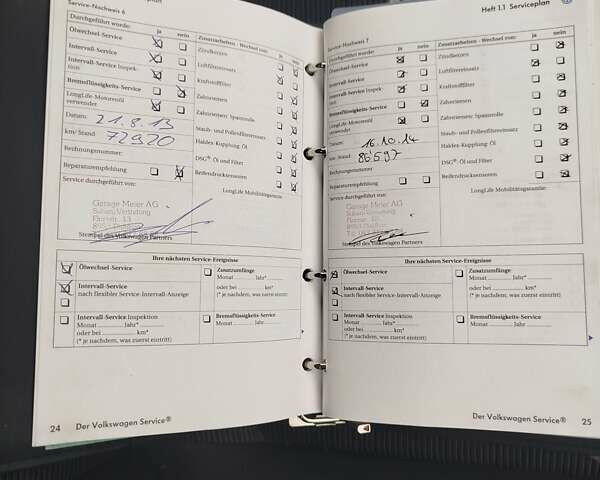 Service-Nachweis 6
Durchgeführt wurde: ja nein
Ölwechsel-Service
Intervall-Service
Intervall-Service Inspektion
Bremsflüssigkeits-Service
LongLife-Motorenöl
verwendet
Datum: 21.8.13
km/ Stand: 72920
Rechnungsnummer:
Reparaturempfehlung
Service durchgeführt von:
Garage Meier AG
Subaru-Vertretung
Stempel des Volkswagen Partners
Zusatzarbeiten - Wechsel von: ja nein
Zündkerzen
Luftfiltereinsatz
Kraftstoffilter
Zahnriemen
Zahnriemen: Spannrolle
Staub- und Pollenfiltereinsatz
Haldex-Kupplung: Öl
DSG®: Öl und Filter
Reifendrucksensoren
LongLife Mobilitätsgarantie:
Ihre nächsten Service-Ereignisse
Ölwechsel-Service
Intervall-Service
nach flexibler Service-Intervall-Anzeige
Intervall-Service Inspektion
Monat Jahr*
oder bei km*
(* je nachdem, was zuerst eintritt)
Zusatzumfänge
Monat Jahr*
oder bei km*
(* je nachdem, was zuerst eintritt)
Bremsflüssigkeits-Service
Monat Jahr
24 Der Volkswagen Service®
Heft 1.1 Serviceplan
Service-Nachweis 7
Durchgeführt wurde: ja nein
Ölwechsel-Service
Intervall-Service
Intervall-Service Inspektion
Bremsflüssigkeits-Service
LongLife-Motorenöl
verwendet
Datum: 16.10.14
km/ Stand: 86597
Rechnungsnummer:
Reparaturempfehlung
Service durchgeführt von:
Garage Meier AG
Subaru-Vertretung
Stempel des Volkswagen Partners
Zusatzarbeiten - Wechsel von: ja nein
Zündkerzen
Luftfiltereinsatz
Kraftstoffilter
Zahnriemen
Zahnriemen: Spannrolle
Staub- und Pollenfiltereinsatz
Haldex-Kupplung: Öl
DSG®: Öl und Filter
Reifendrucksensoren
LongLife Mobilitätsgarantie:
Ihre nächsten Service-Ereignisse
Ölwechsel-Service
Intervall-Service
nach flexibler Service-Intervall-Anzeige
Intervall-Service Inspektion
Monat Jahr*
oder bei km*
(* je nachdem, was zuerst eintritt)
Zusatzumfänge
Monat Jahr*
oder bei km*
(* je nachdem, was zuerst eintritt)
Bremsflüssigkeits-Service
Monat Jahr
Der Volkswagen Service® 25